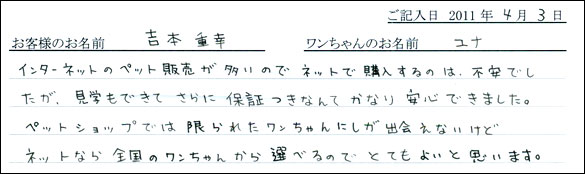 ご記入日 2011 年 4 月 3 日
お客様のお名前 吉本 重幸 ワンちゃんのお名前 ユナ
インターネットのペット販売が多いので ネットで購入するのは、不安でし
たが、見学もできて さらに 保証つきなんて かなり 安心できました。
ペットショップでは 限られたワンちゃんにしが出会えないけど
ネットなら 全国のワンちゃんから 選べるので とても よいと 思います。